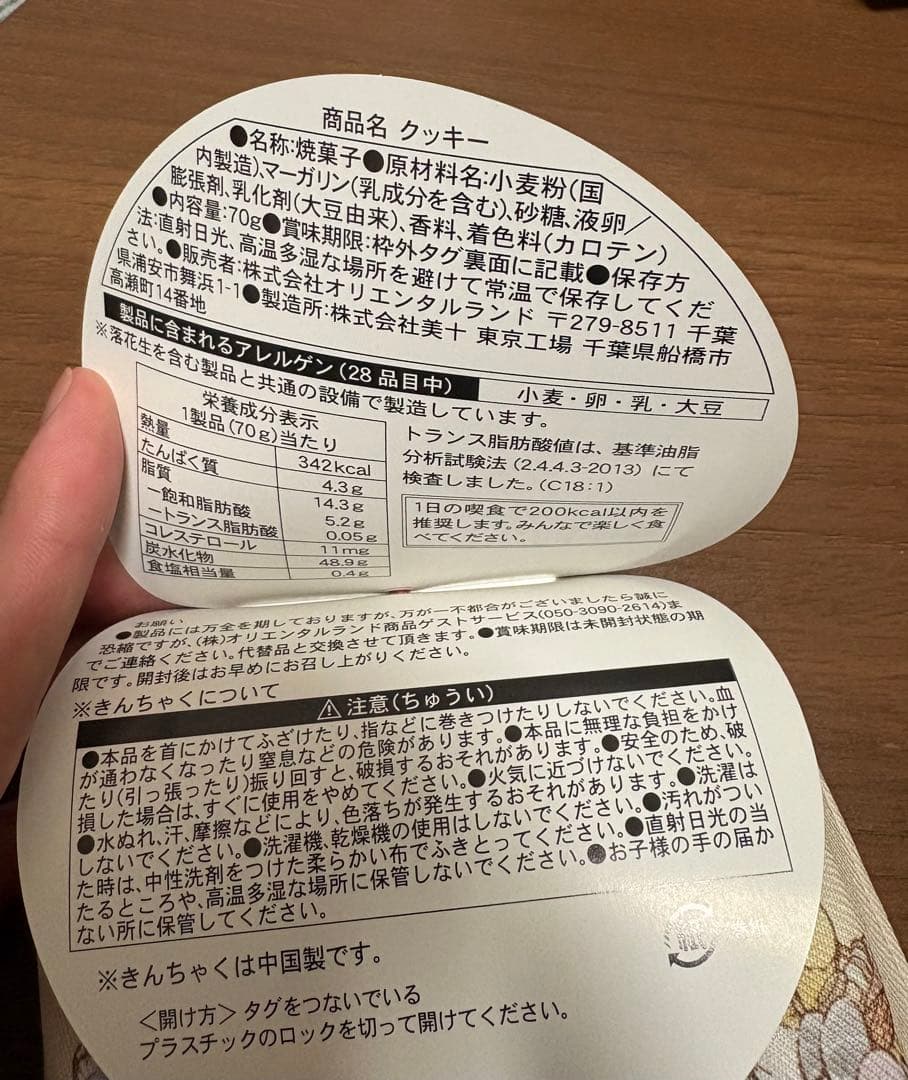 商品名 クッキー
●名称:焼菓子●原材料名:小麦粉(国
内製造)、マーガリン(乳成分を含む)、砂糖、液卵／
膨張剤、乳化剤(大豆由来)、香料、着色料(カロテン)
●内容量:70g●賞味期限:枠外タグ裏面に記載●保存方
法:直射日光、高温多湿な場所を避けて常温で保存してくだ
さい。●販売者:株式会社オリエンタルランド 〒279-8511 千葉
県浦安市舞浜1-1●製造所:株式会社美十 東京工場 千葉県船橋市
高瀬町14番地
製品に含まれるアレルゲン(28品目中) 小麦・卵・乳・大豆
※落花生を含む製品と共通の設備で製造しています。
栄養成分表示
1製品(70g)当たり
熱量 342kcal
たんぱく質 4.3g
脂質 14.3g
－飽和脂肪酸 5.2g
－トランス脂肪酸 0.05g
コレステロール 11mg
炭水化物 48.9g
食塩相当量 0.4g
トランス脂肪酸値は、基準油脂
分析試験法(2.4.4.3-2013)にて
検査しました。(C18:1)
1日の喫食で200kcal以内を
推奨します。みんなで楽しく食
べてください。
お願い
●製品には万全を期しておりますが、万が一不都合がございましたら誠に
恐縮ですが、(株)オリエンタルランド商品ゲストサービス(050-3090-2614)ま
でご連絡ください。代替品と交換させて頂きます。●賞味期限は未開封状態の期
限です。開封後はお早めにお召し上がりください。
※きんちゃくについて
⚠注意(ちゅうい)
●本品を首にかけてふざけたり、指などに巻きつけたりしないでください。血
が通わなくなったり窒息などの危険があります。●本品に無理な負担をかけ
たり(引っ張ったり)振り回すと、破損するおそれがあります。●安全のため、破
損した場合は、すぐに使用をやめてください。●火気に近づけないでください。
●水ぬれ、汗、摩擦などにより、色落ちが発生するおそれがあります。●洗濯は
しないでください。●洗濯機、乾燥機の使用はしないでください。●汚れがつい
た時は、中性洗剤をつけた柔らかい布でふきとってください。●直射日光の当
たるところや、高温多湿な場所に保管しないでください。●お子様の手の届か
ない所に保管してください。
※きんちゃくは中国製です。
紙
＜開け方＞タグをつないでいる
プラスチックのロックを切って開けてください。